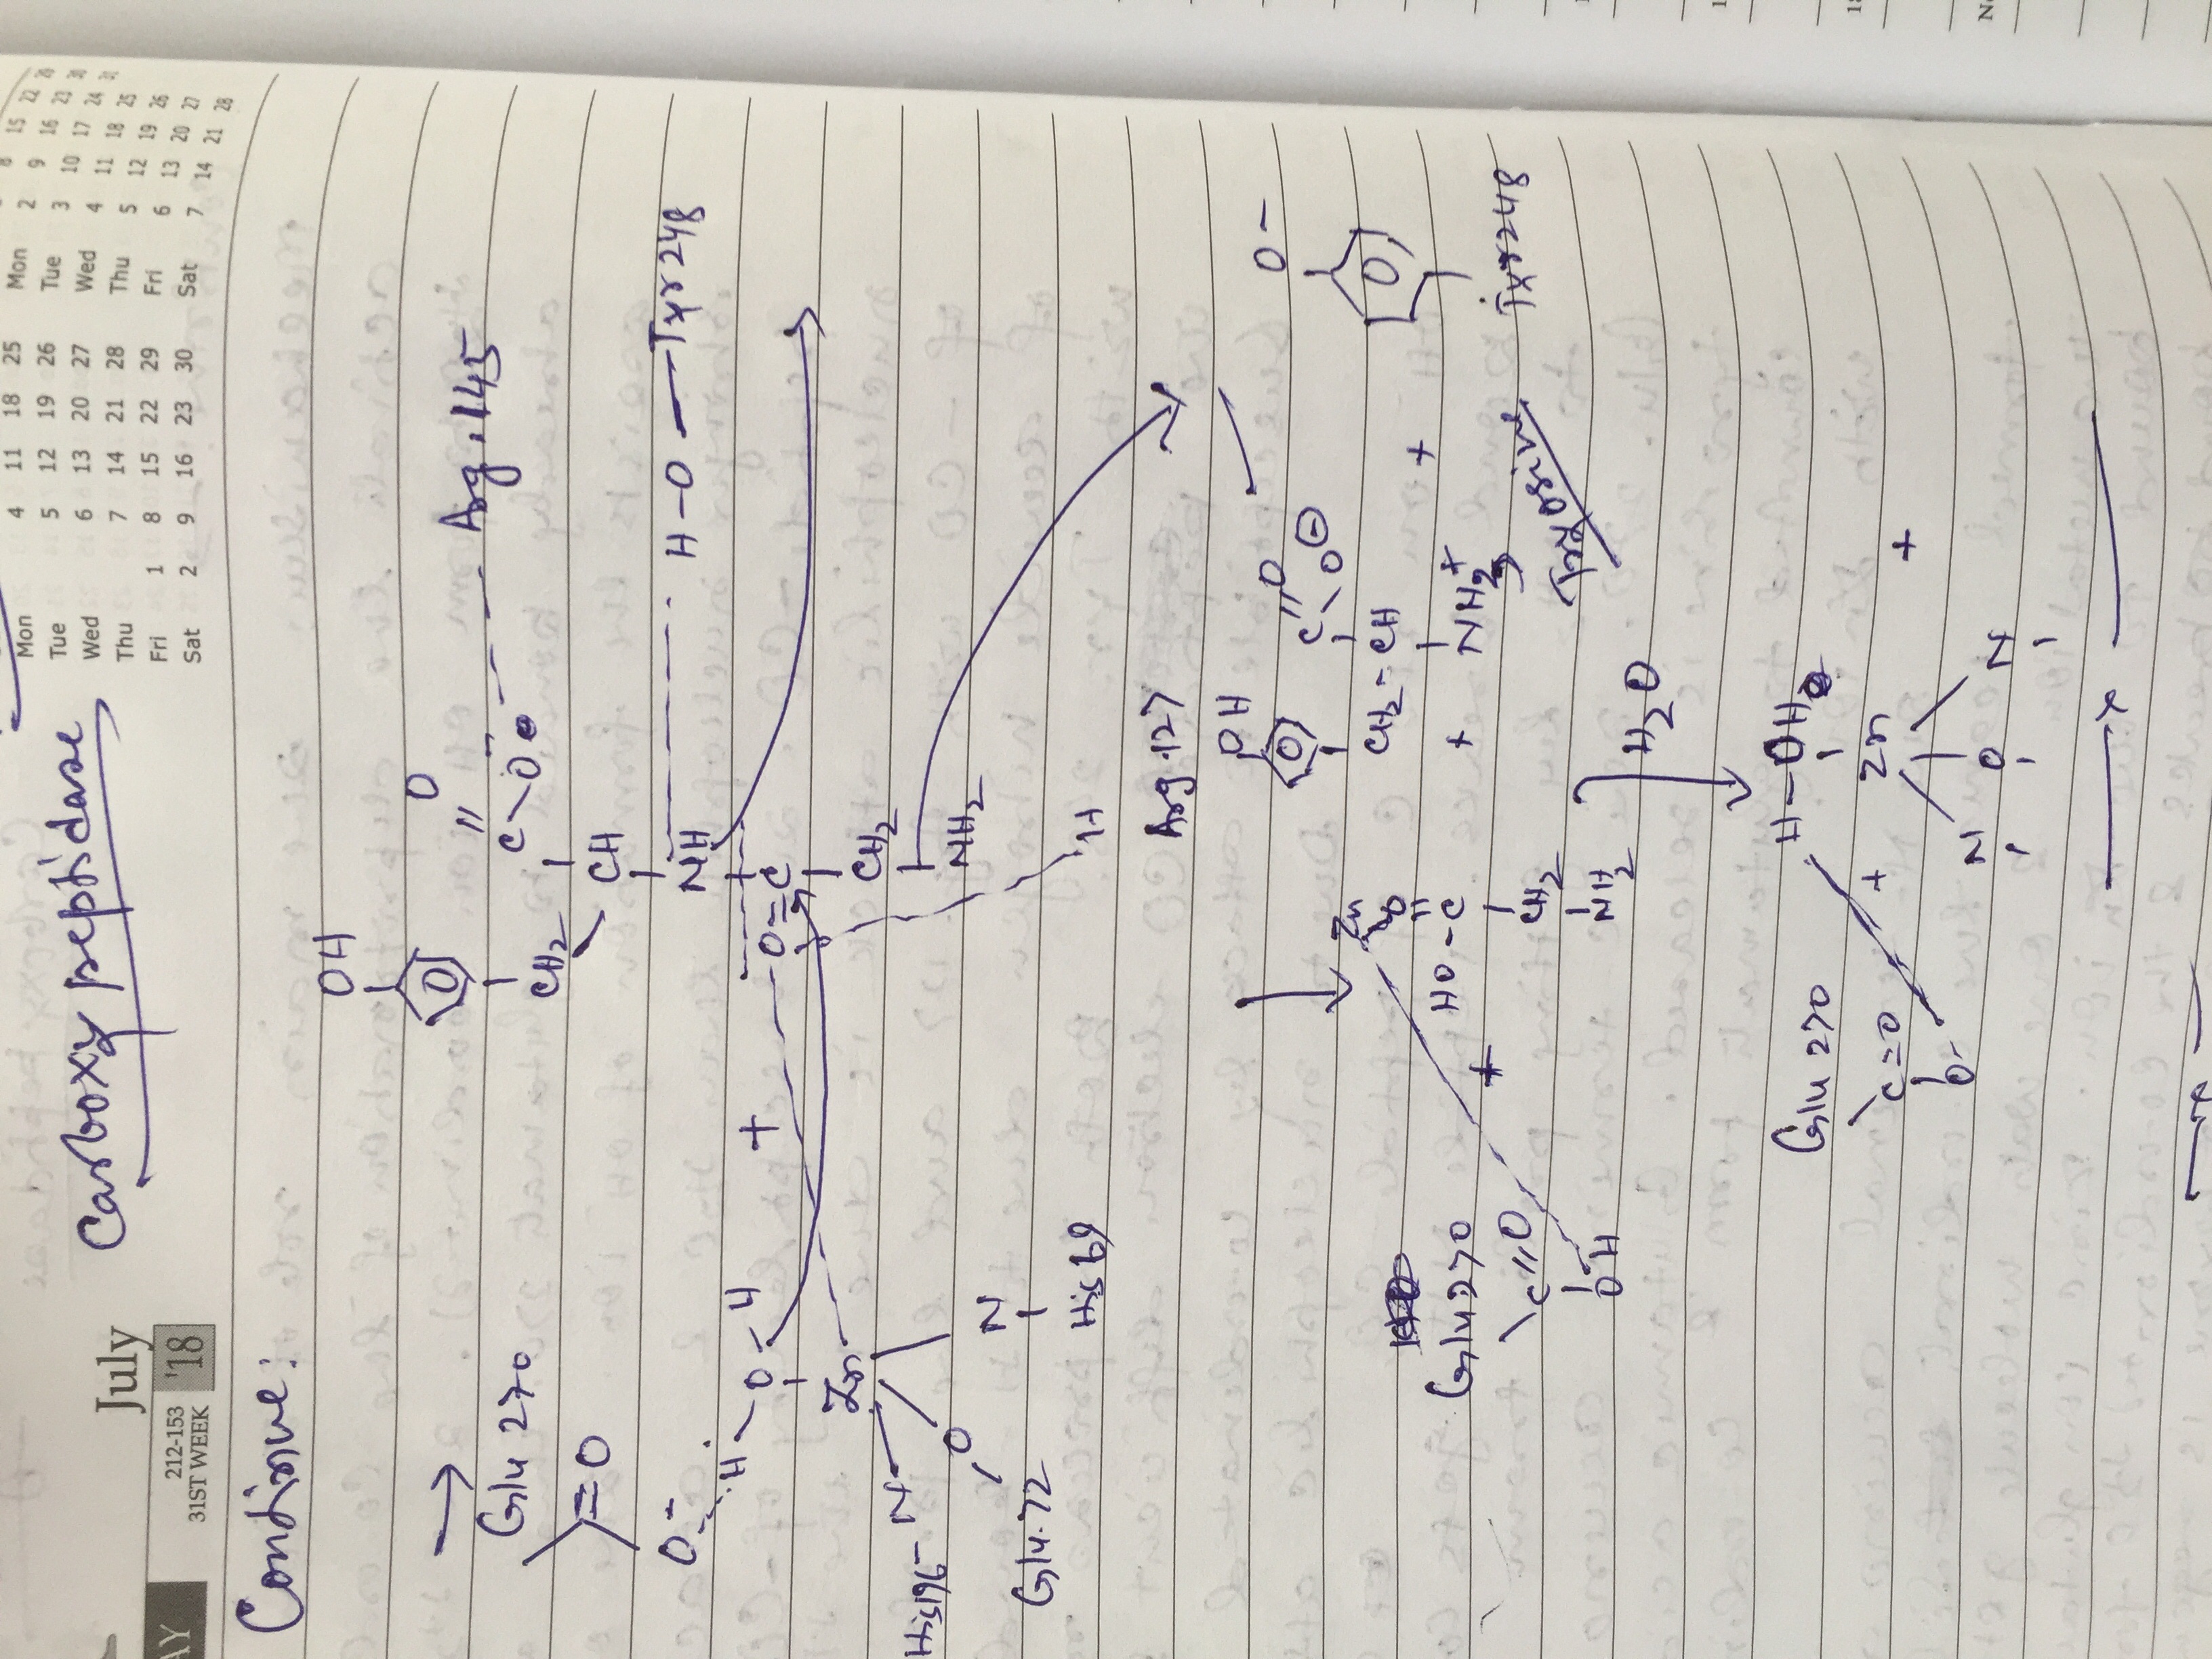 July
212-153
31ST WEEK
'18
AY
Carboxy peptidase
Mon 4 11 18 25
Tue 5 12 19 26
Wed 6 13 20 27
Thu 7 14 21 28
Fri 1 8 15 22 29
Sat 2 9 16 23 30
Mon 2 9 16 23 30
Tue 3 10 17 24 31
Wed 4 11 18 25
Thu 5 12 19 26
Fri 6 13 20 27
Sat 7 14 21 28
Continue:
OH
O
Arg.145
C-O
CH2
CH
→ Glu 270
=O
O-
H-O-H
+
NH
H-O-Tyr248
O=C
Zn
CH2
NH2
His196-N
O
N
Glu.72
His 69
H
Arg.127
OH
C=O
O⊖
O-
CH2-CH
+
NH3+
+
Tyr248
Tyrosine
Zn
O
HO-C
CH2
NH2
Glu270
+
C=O
OH
H2O
H-OH
Zn
+
N
O
N
+
Glu 270
C=O
O-
x